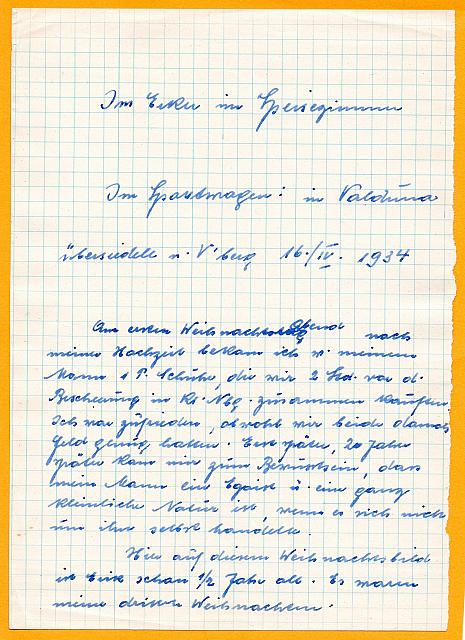 Im Erker im Speisezimmer
Im Sportwagen: in Valduna
übersiedelt n. V'berg 16./IV. 1934
Am ersten Weihnachtsabend nach
meiner Hochzeit bekam ich v. meinem
Mann 1 P. Schuhe, die wir 2 Std. vor d.
Bescherung in Kl. Nbg. zusammen kauften.
Ich war zufrieden, obwohl wir beide damals
Geld genug hatten. Erst später, 20 Jahre
später kam mir zum Bewusstsein, dass
mein Mann ein Egoist u. eine ganz
kleinliche Natur ist, wenn es sich nicht
um ihn selbst handelt.
Hier auf diesem Weihnachtsbild
ist Erik schon 1/2 Jahr alt. Es waren
meine dritten Weihnachten.